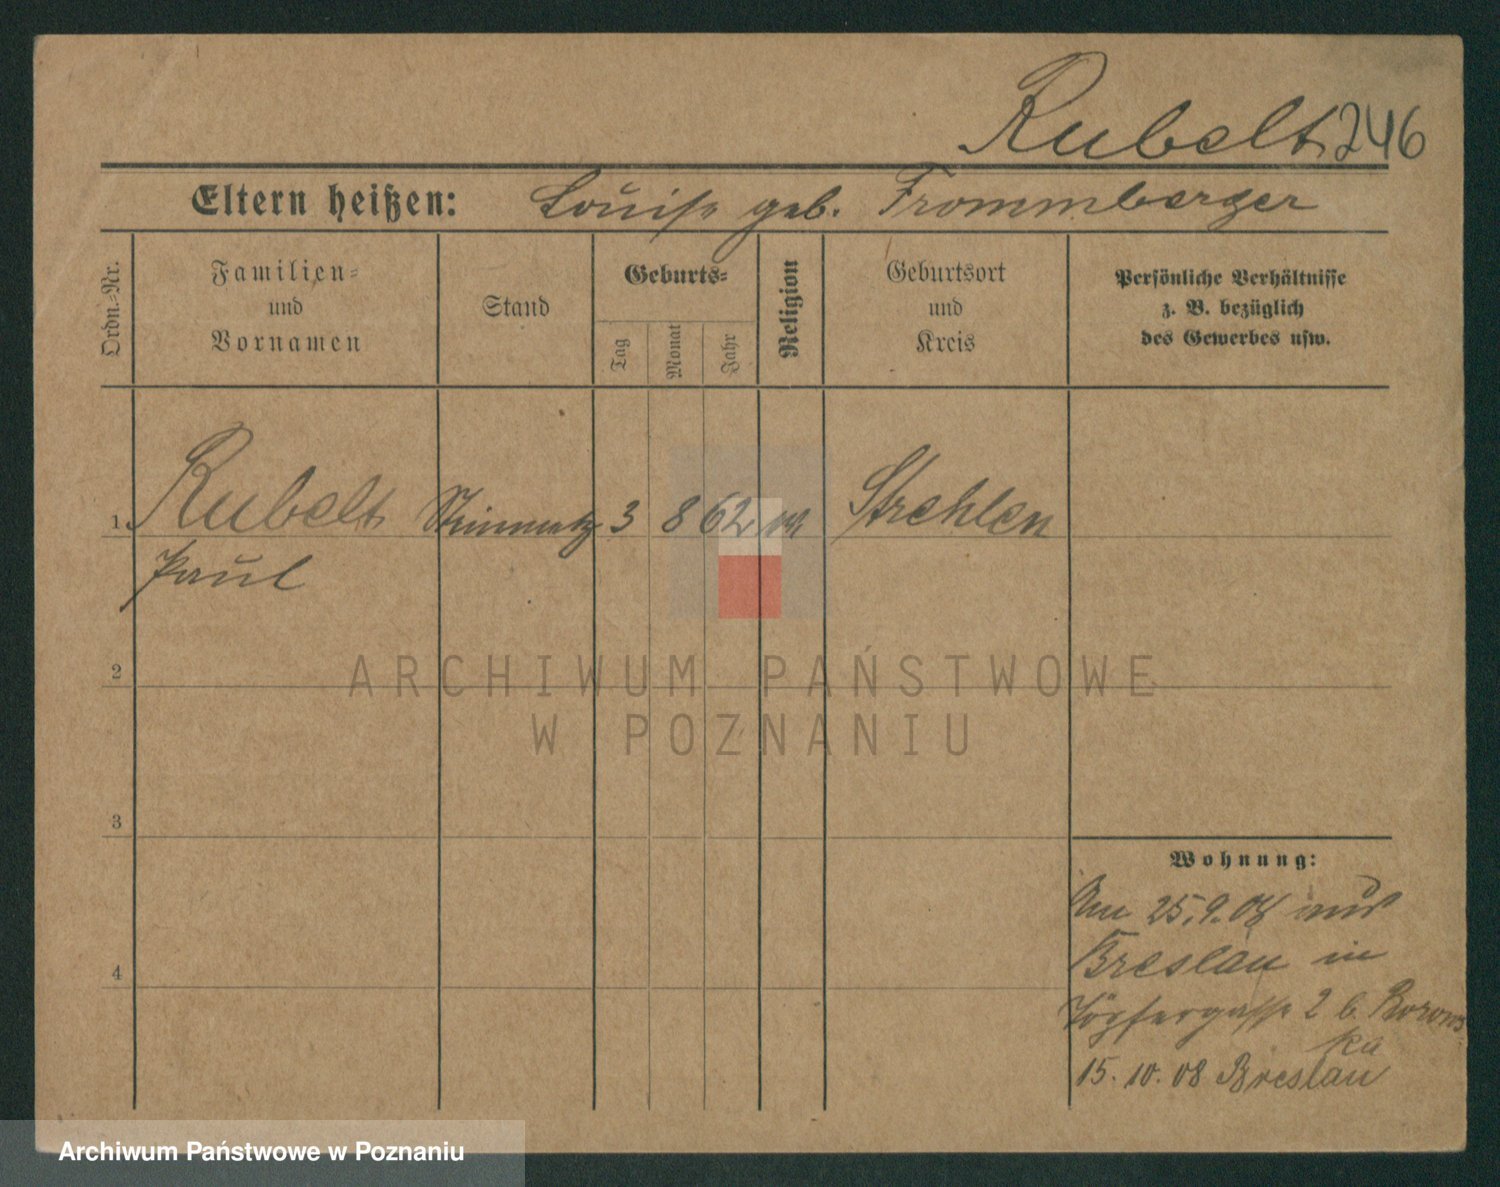 Rubelt 246
Eltern heißen: Louise geb. Frommberger
Ordn.-Nr.
Familien-
und
Vornamen
Stand
Geburts-
Tag
Monat
Jahr
Religion
Geburtsort
und
Kreis
Persönliche Verhältnisse
z. B. bezüglich
des Gewerbes usw.
1. Rubelt Steinmetz 3 8 62 Strehlen
Paul
2
3
4
Wohnung:
Am 25.9.08 aus
Breslau in
Töpfergasse 2 b. Borows
ka
15.10.08 Breslau
ARCHIWUM PAŃSTWOWE
W POZNANIU
Archiwum Państwowe w Poznaniu